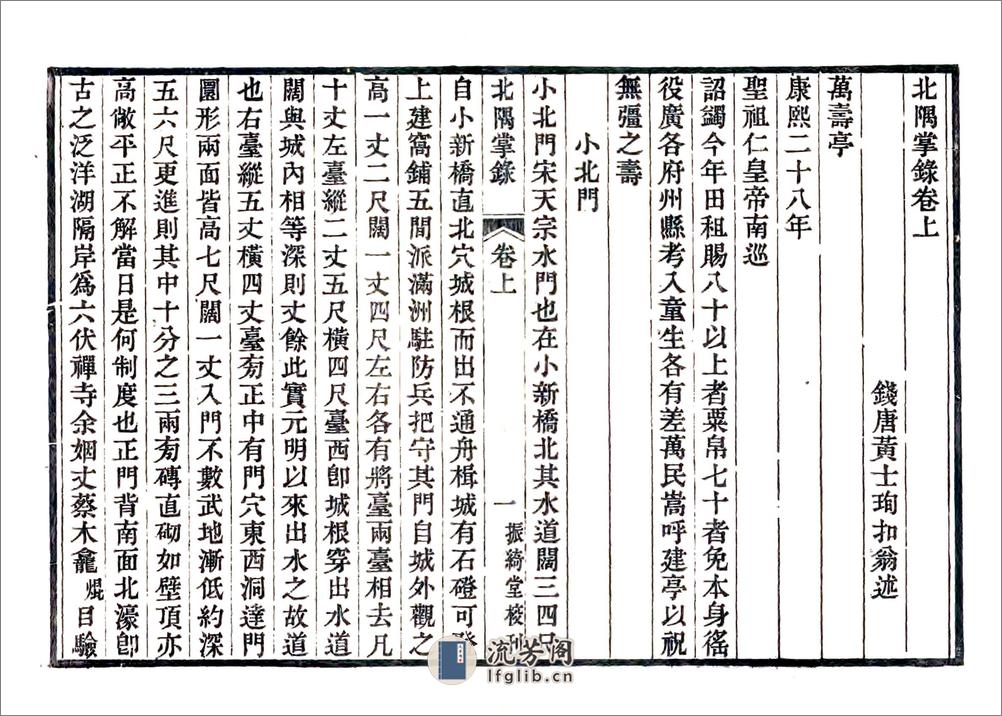 北隅掌錄卷上
錢唐黃士珣扣翁述
萬壽亭
康熙二十八年
聖祖仁皇帝南巡
詔蠲今年田租賜八十以上者粟帛七十者免本身徭
役廣各府州縣考入童生各有差萬民嵩呼建亭以祝
無彊之壽
小北門
小北門宋天宗水門也在小新橋北其水道闊三四尺
北隅掌錄 卷上 一 振綺堂校刊
自小新橋直北穴城根而出不通舟楫城有石磴可
上建窩鋪五間派滿洲駐防兵把守其門自城外觀之
高一丈二尺闊一丈四尺左右各有將臺兩臺相去凡
十丈左臺縱二丈五尺橫四尺臺西卽城根穿出水道
闊與城內相等深則丈餘此實元明以來出水之故道
也右臺縱五丈橫四丈臺旁正中有門穴東西洞達門
圓形兩面皆高七尺闊一丈入門不數武地漸低約深
五六尺更進則其中十分之三兩旁磚直砌如壁頂亦
高敞平正不解當日是何制度也正門背南面北濠卽
古之泛洋湖隔岸爲六伏禪寺余姻丈蔡木龕焜目驗
流芳阁
lfglib.cn